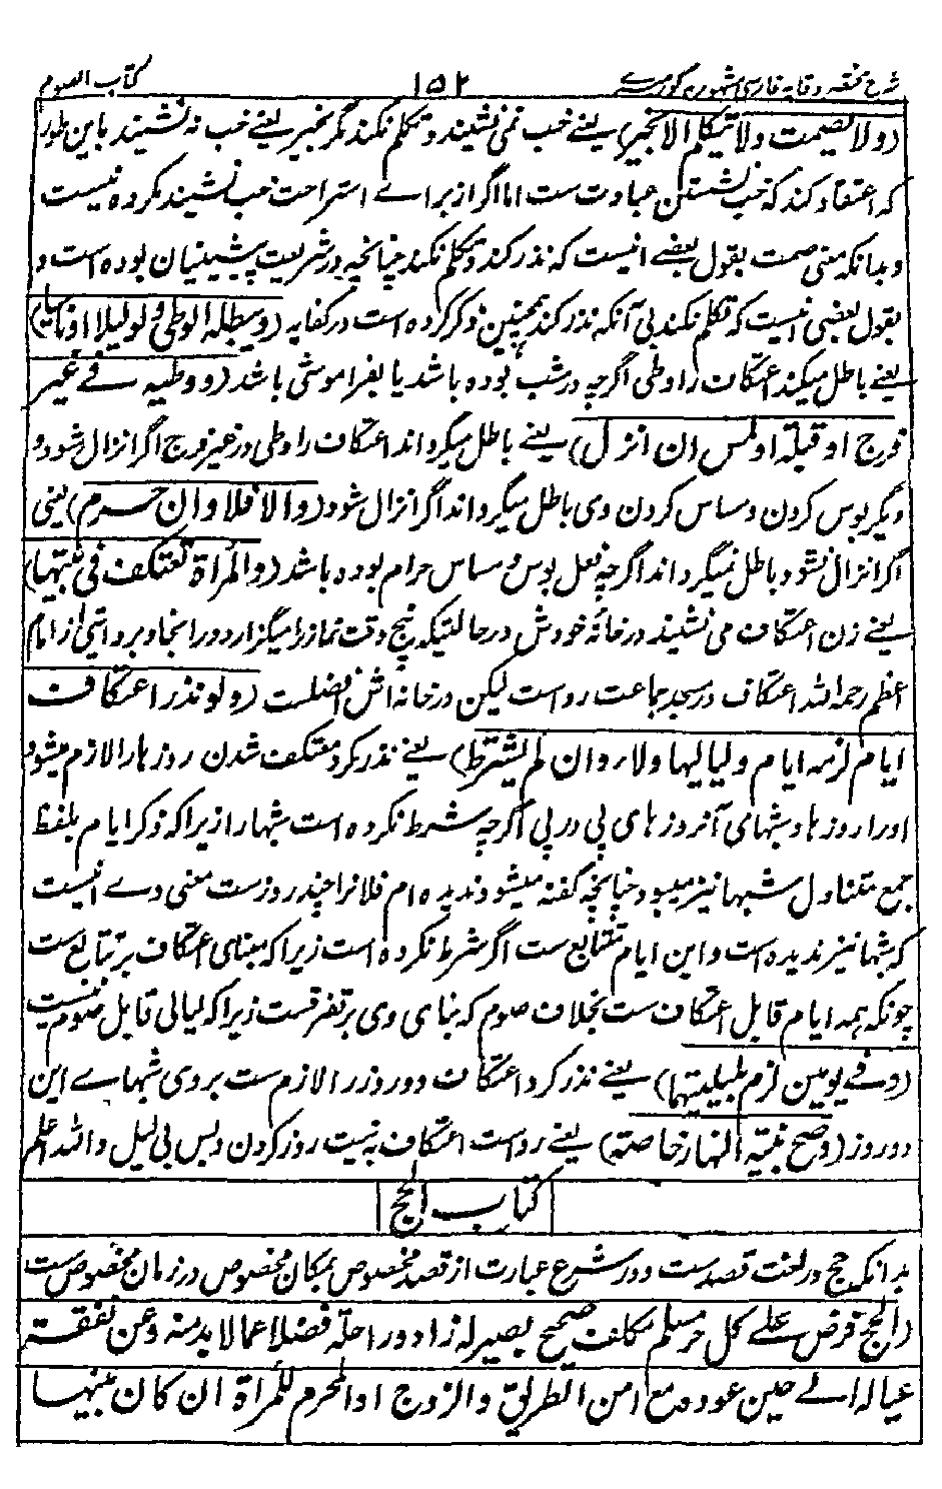 شرح مختصر وقایه فارسی مشهور به کورسے ۱۵۲ کتاب الصوم
(ولا یصمت ولا یتکلم الا بخیر) یعنے خب نمی نشیند و تکلم نکند مگر بخیر یعنے خب نه نشیند باین طور
که اعتقاد کند که خب نشستن عبادت ست اما اگر از براے استراحت خب نشیند مکروه نیست
و بدانکه معنی صمت بقول بعضے انیست که نذر کند و تکلم نکند چنانچه در شریعت پیشینیان بوده است و
بقول بعضی انیست که تکلم نکند بی آنکه نذر کند همچنین ذکر کرده است در کفایه (ویبطله الوطی ولو لیلا او ناسیا)
یعنے باطل میکند اعتکاف را وطی اگرچه در شب بوده باشد یا بفراموشی باشد (ووطیه فے غیر
فرج او قبلة او لمس ان انزل) یعنے باطل میگرداند اعتکاف را وطی در غیر فرج اگر انزال شود و
دیگر بوس کردن و مساس کردن وی باطل میگرداند اگر انزال شود (والا فلا وان حرم) یعنی
اگر انزال نشود باطل نمیگرداند اگرچه فعل بوس و مساس حرام بوده باشد (والمرأة تعتکف فی بیتها)
یعنے زن اعتکاف می نشیند در خانهٔ خودش در حالتیکه پنج وقت نماز را میگزارد در انجا و بروایتی از امام
اعظم رحمه الله اعتکاف در مسجد جماعت رواست لیکن در خانه اش افضلست (ولو نذر اعتکاف
ایام لزمه ایام و لیالیها ولاء وان لم یشترط) یعنے نذر کرد معتکف شدن روزها را لازم میشود
اورا روزها و شبهای آنروزهای پی در پی اگرچه شرط نکرده است شبها را زیرا که ذکر ایام بلفظ
جمع متناول شبها نیز میبود چنانچه گفته میشود ندیده ام فلانرا چند روزست معنی وے انیست
که شبها نیز ندیده است و این ایام متتابع ست اگر شرط نکرده است زیرا که مبنای اعتکاف بر تتابع ست
چونکه همه ایام قابل اعتکاف ست بخلاف صوم که بنای وی بر تفرقست زیرا که لیالی قابل صوم نیست
(وفے یومین لزم بلیلیتهما) یعنے نذر کرد اعتکاف دو روز را لازم ست بروی شبهاے این
دو روز (وصح نیة النهار خاصة) یعنے رواست اعتکاف به نیت روز کردن و بس بی لیل والله اعلم
کتاب الحج
بدانکه حج در لغت قصدست و در شرع عبارت از قصد مخصوص بمکان مخصوص در زمان مخصوص ست
(الحج فرض علے کل حر مسلم مکلف صحیح بصیر له زاد وراحلة فضلا عما لا بد منه وعن نفقة
عیاله الے حین عوده مع امن الطریق والزوج او المحرم للمرأة ان کان بینها